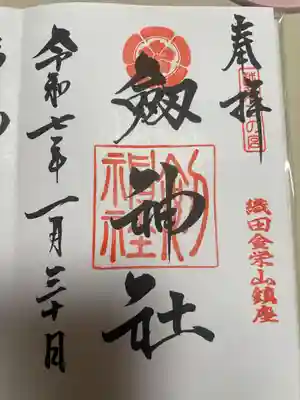 奉拝
織田金栄山鎮座
劔神社
劔神社
令和七年一月三十日